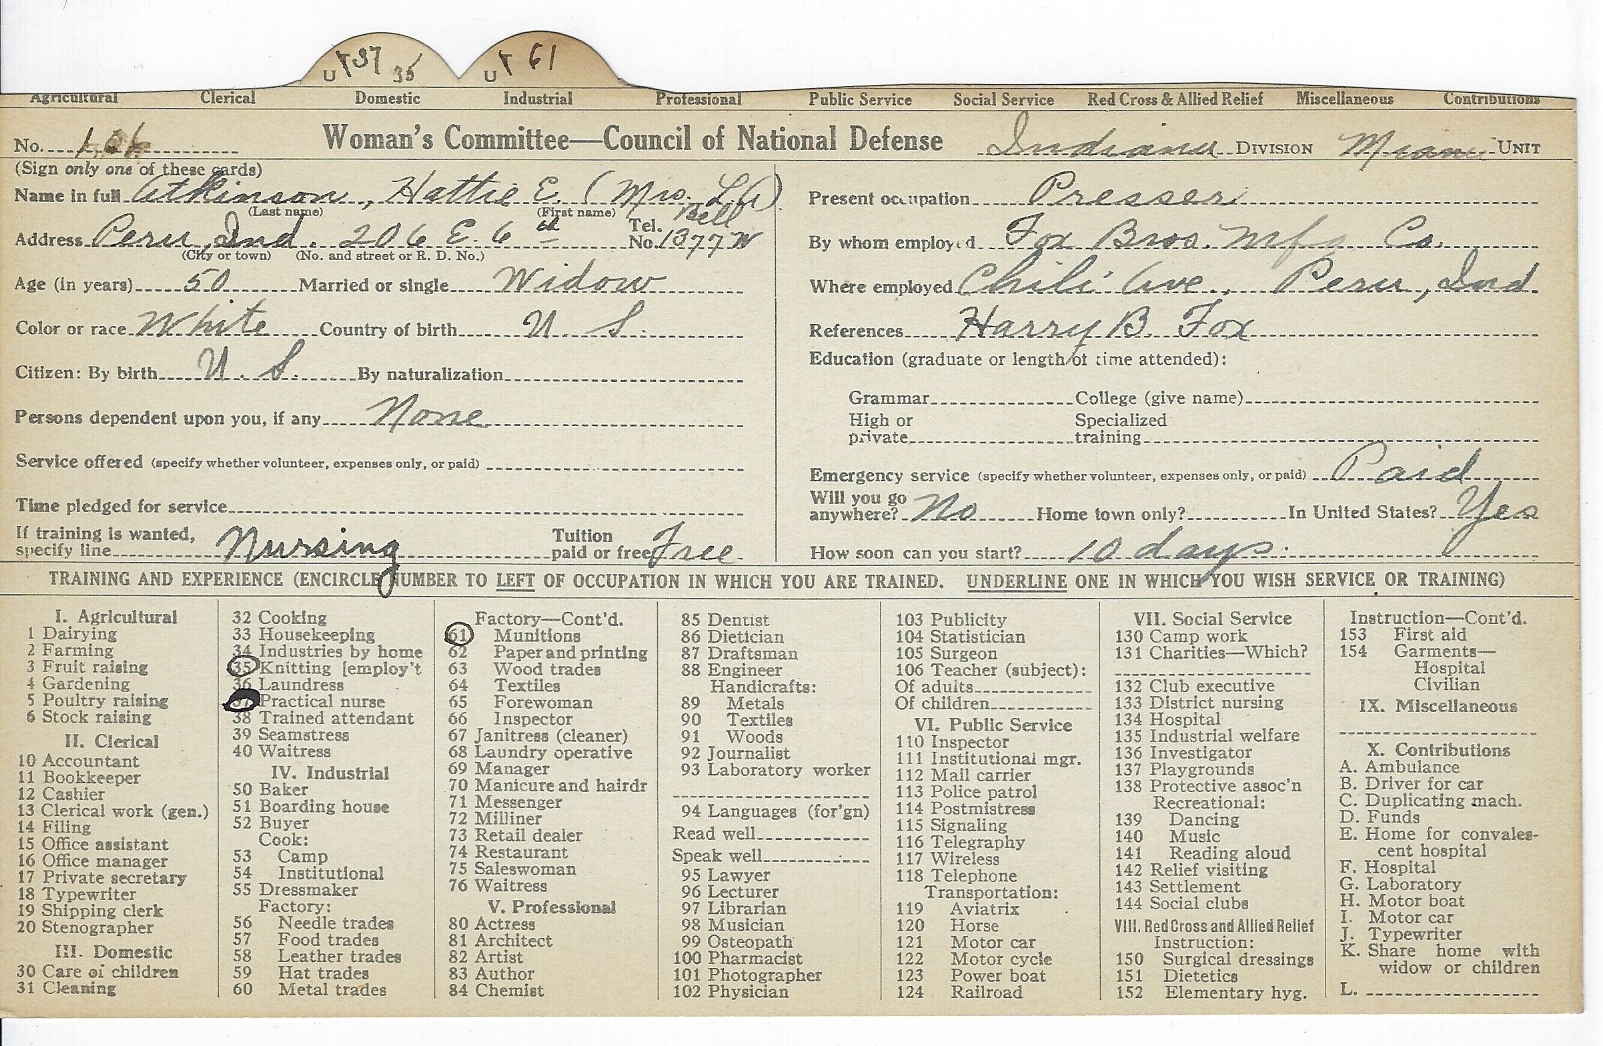 U T 37 35 U T 61
Agricultural Clerical Domestic Industrial Professional Public Service Social Service Red Cross & Allied Relief Miscellaneous Contributions
No. 106 Woman's Committee—Council of National Defense Indiana DIVISION Miami UNIT
(Sign only one of these cards)
Name in full Atkinson, Hattie E. (Mrs. L. A.)
(Last name) (First name)
Address Peru, Ind. 206 E 6th Tel. No. Bell 1377 W
(City or town) (No. and street or R. D. No.)
Age (in years) 50 Married or single Widow
Color or race White Country of birth U. S.
Citizen: By birth U. S. By naturalization
Persons dependent upon you, if any None
Service offered (specify whether volunteer, expenses only, or paid)
Time pledged for service
If training is wanted,
specify line Nursing Tuition paid or free Free
Present occupation Presser
By whom employed Fox Bros. Mfg Co.
Where employed Chili Ave., Peru, Ind
References Harry B. Fox
Education (graduate or length of time attended):
Grammar College (give name)
High or private Specialized training
Emergency service (specify whether volunteer, expenses only, or paid) Paid
Will you go
anywhere? No Home town only? In United States? Yes
How soon can you start? 10 days.
TRAINING AND EXPERIENCE (ENCIRCLE NUMBER TO LEFT OF OCCUPATION IN WHICH YOU ARE TRAINED. UNDERLINE ONE IN WHICH YOU WISH SERVICE OR TRAINING)
I. Agricultural
1 Dairying
2 Farming
3 Fruit raising
4 Gardening
5 Poultry raising
6 Stock raising
II. Clerical
10 Accountant
11 Bookkeeper
12 Cashier
13 Clerical work (gen.)
14 Filing
15 Office assistant
16 Office manager
17 Private secretary
18 Typewriter
19 Shipping clerk
20 Stenographer
III. Domestic
30 Care of children
31 Cleaning
32 Cooking
33 Housekeeping
34 Industries by home
35 Knitting [employ't
36 Laundress
37 Practical nurse
38 Trained attendant
39 Seamstress
40 Waitress
IV. Industrial
50 Baker
51 Boarding house
52 Buyer
Cook:
53 Camp
54 Institutional
55 Dressmaker
Factory:
56 Needle trades
57 Food trades
58 Leather trades
59 Hat trades
60 Metal trades
Factory—Cont'd.
61 Munitions
62 Paper and printing
63 Wood trades
64 Textiles
65 Forewoman
66 Inspector
67 Janitress (cleaner)
68 Laundry operative
69 Manager
70 Manicure and hairdr
71 Messenger
72 Milliner
73 Retail dealer
74 Restaurant
75 Saleswoman
76 Waitress
V. Professional
80 Actress
81 Architect
82 Artist
83 Author
84 Chemist
85 Dentist
86 Dietician
87 Draftsman
88 Engineer
Handicrafts:
89 Metals
90 Textiles
91 Woods
92 Journalist
93 Laboratory worker
94 Languages (for'gn)
Read well
Speak well
95 Lawyer
96 Lecturer
97 Librarian
98 Musician
99 Osteopath
100 Pharmacist
101 Photographer
102 Physician
103 Publicity
104 Statistician
105 Surgeon
106 Teacher (subject):
Of adults
Of children
VI. Public Service
110 Inspector
111 Institutional mgr.
112 Mail carrier
113 Police patrol
114 Postmistress
115 Signaling
116 Telegraphy
117 Wireless
118 Telephone
Transportation:
119 Aviatrix
120 Horse
121 Motor car
122 Motor cycle
123 Power boat
124 Railroad
VII. Social Service
130 Camp work
131 Charities—Which?
132 Club executive
133 District nursing
134 Hospital
135 Industrial welfare
136 Investigator
137 Playgrounds
138 Protective assoc'n
Recreational:
139 Dancing
140 Music
141 Reading aloud
142 Relief visiting
143 Settlement
144 Social clubs
VIII. Red Cross and Allied Relief
Instruction:
150 Surgical dressings
151 Dietetics
152 Elementary hyg.
Instruction—Cont'd.
153 First aid
154 Garments—
Hospital
Civilian
IX. Miscellaneous
X. Contributions
A. Ambulance
B. Driver for car
C. Duplicating mach.
D. Funds
E. Home for convales-
cent hospital
F. Hospital
G. Laboratory
H. Motor boat
I. Motor car
J. Typewriter
K. Share home with
widow or children
L.